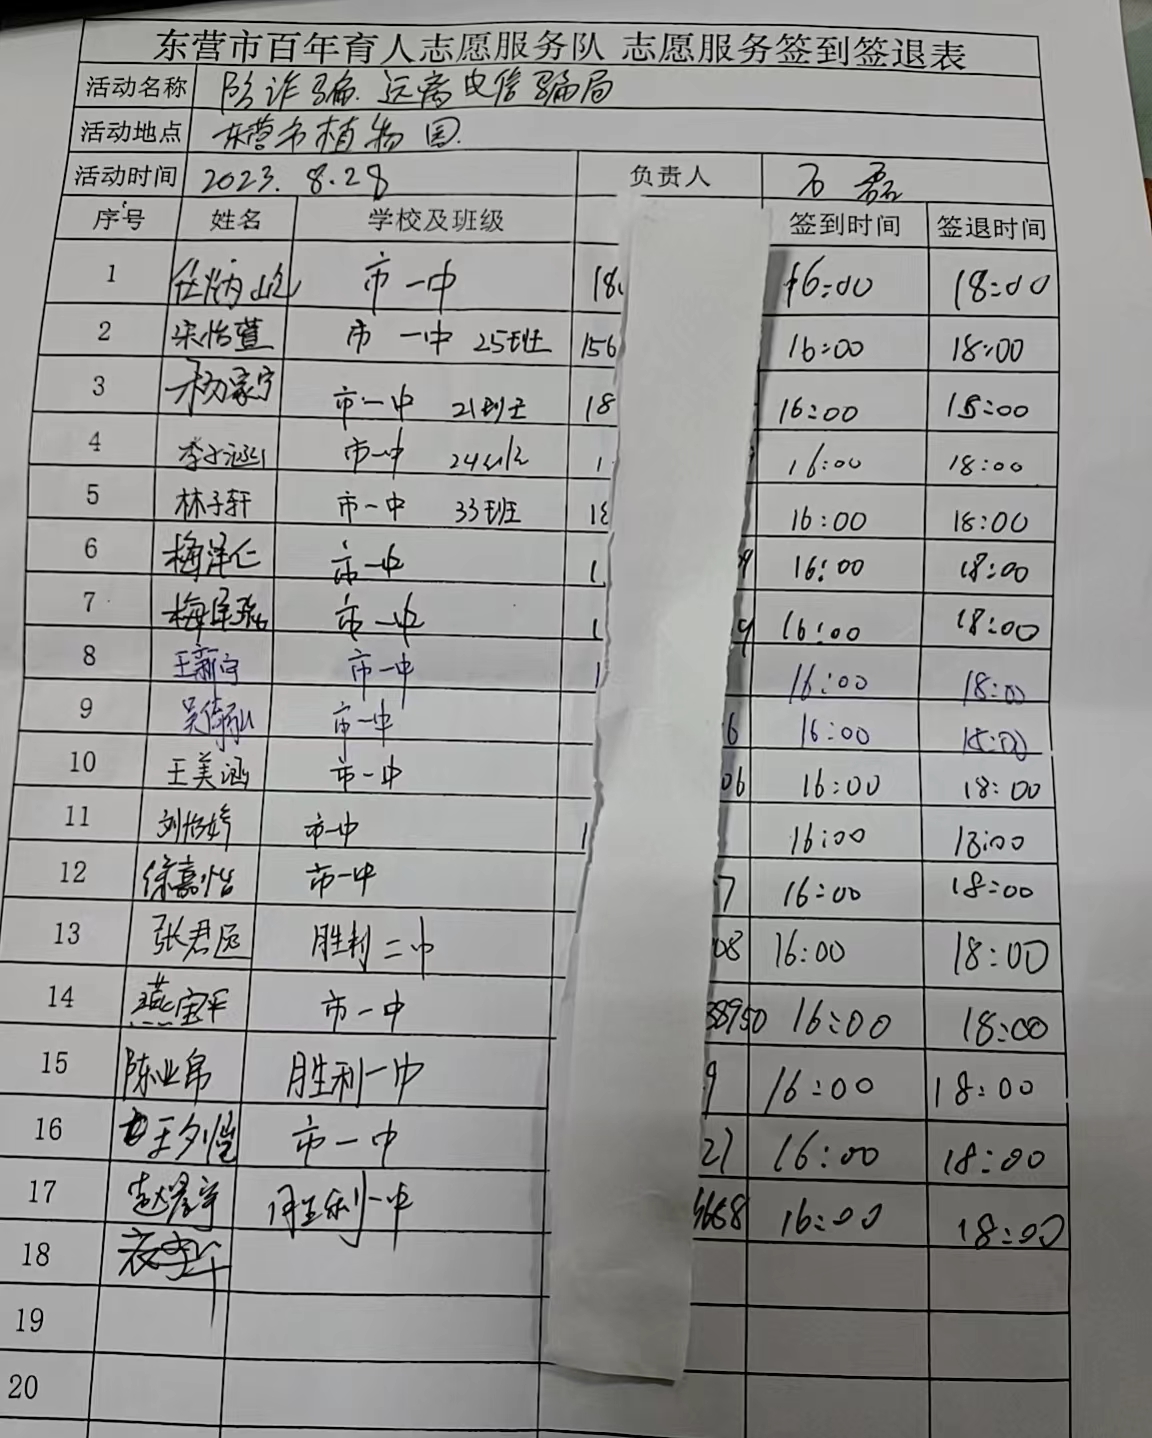 东营市百年育人志愿服务队 志愿服务签到签退表
活动名称 防诈骗.远离电信骗局
活动地点 东营市植物园.
活动时间 2023.8.28 负责人 石磊
序号 姓名 学校及班级 签到时间 签退时间
1 任炳屹 市一中 18 16:00 18:00
2 宋怡萱 市一中 25班 156 16:00 18:00
3 杨家宁 市一中 21班 18 16:00 18:00
4 李子涵 市一中 24 1 16:00 18:00
5 林子轩 市一中 33班 18 16:00 18:00
6 梅泽仁 市一中 1 16:00 18:00
7 梅 市一中 1 16:00 18:00
8 王新宁 市一中 1 16:00 18:00
9 吴倩 市一中 6 16:00 18:00
10 王美涵 市一中 06 16:00 18:00
11 刘怡婷 市一中 1 16:00 18:00
12 徐嘉怡 市一中 7 16:00 18:00
13 张君 胜利二中 08 16:00 18:00
14 燕宝军 市一中 38950 16:00 18:00
15 陈业帛 胜利一中 9 16:00 18:00
16 王夕恺 市一中 27 16:00 18:00
17 赵彦宇 胜利一中 5668 16:00 18:00
18
19
20